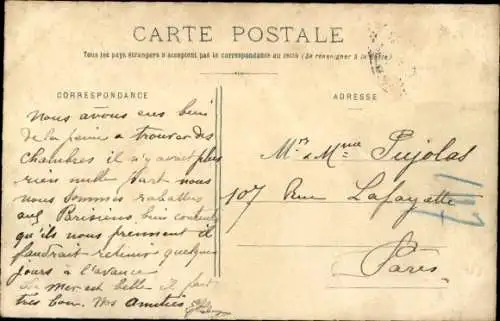 CARTE POSTALE
Tous les pays étrangers n'acceptent pas la correspondance au recto (Se renseigner à la Poste)
CORRESPONDANCE
ADRESSE
Nous avons eus bien
de la peine a trouver des
chambres il n'y avait plus
rien nulle part nous
nous sommes rabattus
aux Parisiens, bien contents
qu'ils nous prennent il
faudrait retenir quelques
jours à l'avance
La mer est belle il fait
Très bon. Nos amitiés
Mr & Mme Pujolas
107 Rue Lafayette
Paris